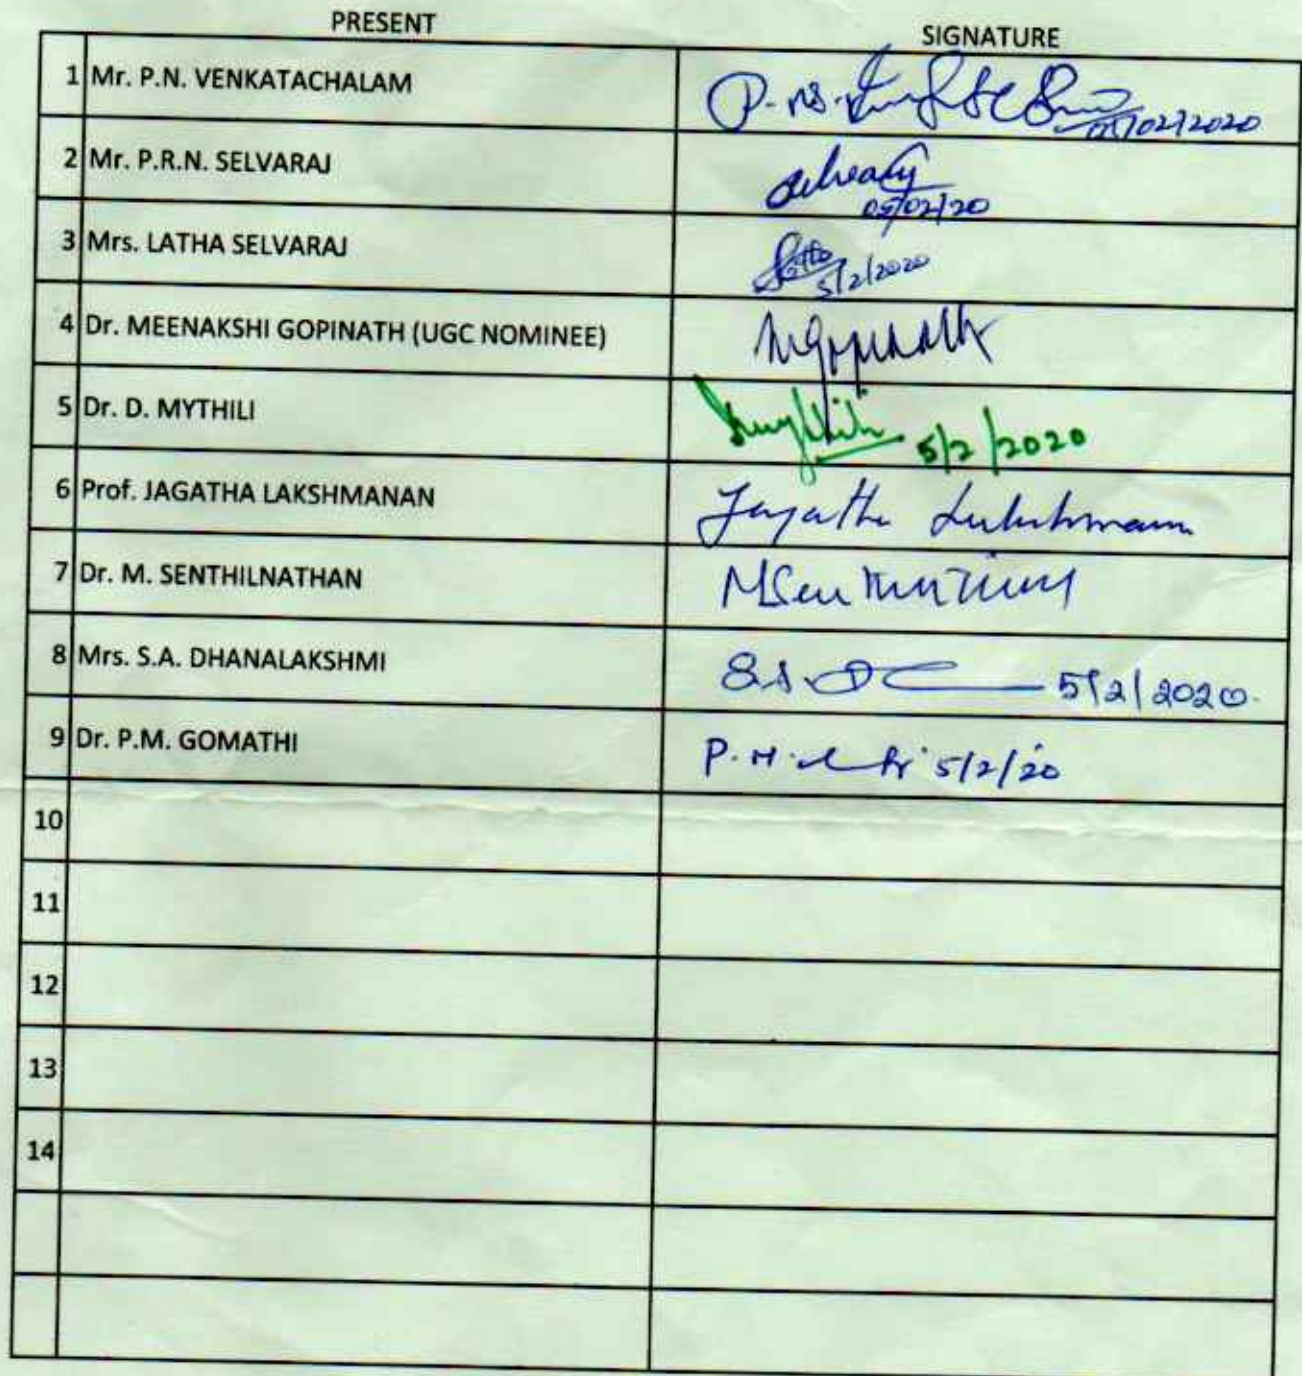 PRESENT SIGNATURE
1 Mr. P.N. VENKATACHALAM 05/02/2020
2 Mr. P.R.N. SELVARAJ 05/02/20
3 Mrs. LATHA SELVARAJ 5/2/2020
4 Dr. MEENAKSHI GOPINATH (UGC NOMINEE) MGopinath
5 Dr. D. MYTHILI 5/2/2020
6 Prof. JAGATHA LAKSHMANAN Jagatha Lakshmanan
7 Dr. M. SENTHILNATHAN
8 Mrs. S.A. DHANALAKSHMI 5/2/2020.
9 Dr. P.M. GOMATHI P.M. 5/2/20
10
11
12
13
14